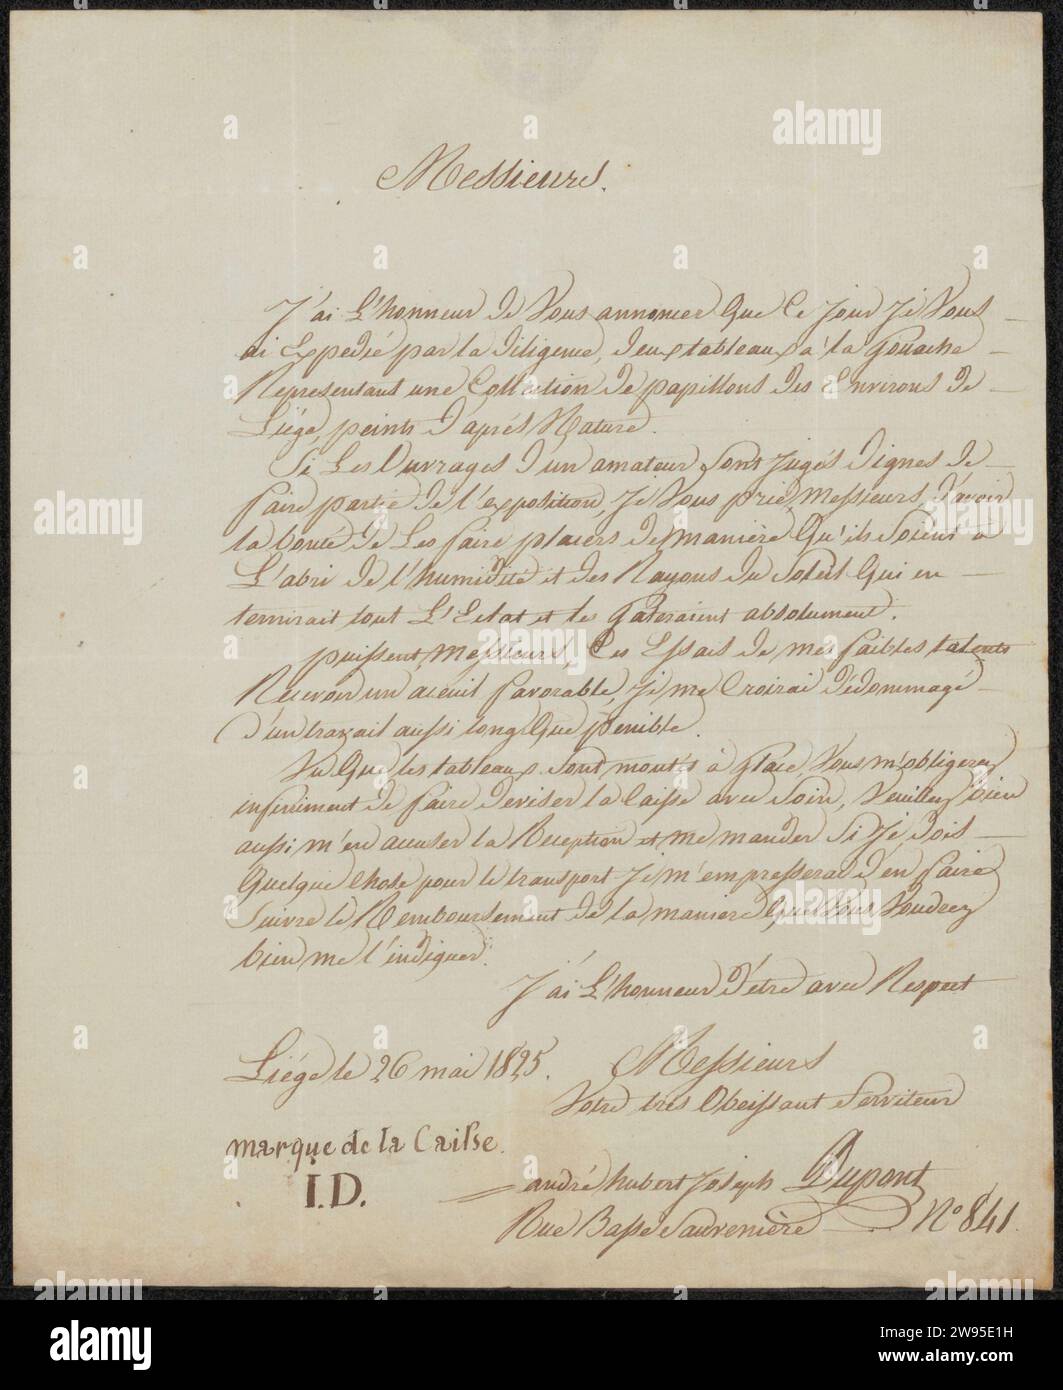 Messieurs.
J'ai L'honneur de Vous annoncer Que Ce jour Je Vous
ai Expedié par la diligence, deux tableaux à la Gouache
Représentant une Collection de papillons des Environs de
Liége, peints d'aprés Nature.
Si Les Ouvrages d'un amateur Sont jugés dignes de
faire partie de l'exposition, Je Vous prie, Messieurs, d'avoir
la bonté de Les faire placers de manière Qu'ils Soient à
L'abri de l'humidité et des Rayons du Soleil Qui en
ternirait tout L'Eclat et les Gateraient absolument.
puissent, Messieurs, Ces Essais de mes faibles talents
Recevoir un aceuil favorable, Je me Croirai dédommagé
d'un travail aussi long Que penible.
Vu Que les tableaux Sont montés à Glace, Vous m'obligerez
infiniment de faire deviser la Caisse avec Soin, Veuillez bien
aussi m'en accuser la Reception et me mander Si Je dois
Quelque Chose pour le transport, Je m'empresserai d'en faire
Suivre le Remboursement de la maniere Que Vous Voudrez
bien me l'indiquer.
J'ai L'honneur d'être avec Respect
Liége le 26 mai 1825. Messieurs
Votre très Obeissant Serviteur
marque de la Caisse.
I.D.
andré hubert Joseph Dupont
Rue Basse Sauvenière N° 841.
alamy
alamy
Image ID: 2W95E1H
www.alamy.com